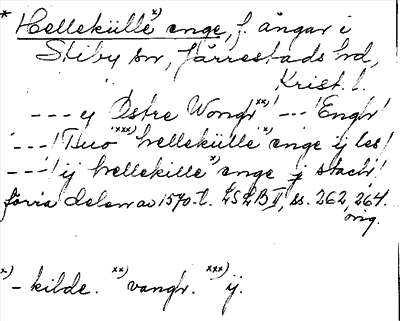 * Helleküllex) enge, f. ängar i
Stiby sn, Järrestads hd,
Krist. l.
--- y Östre Wongrxx)! ---! Engh!
'---! Tuo xxx) helleküllex) enge ij les!
---! ij hellekillex) enge j stach!
förra delen av 1570-t. LSLB II, ss. 262, 264.
orig.
x) - kilde. xx) vangr. xxx) ij.